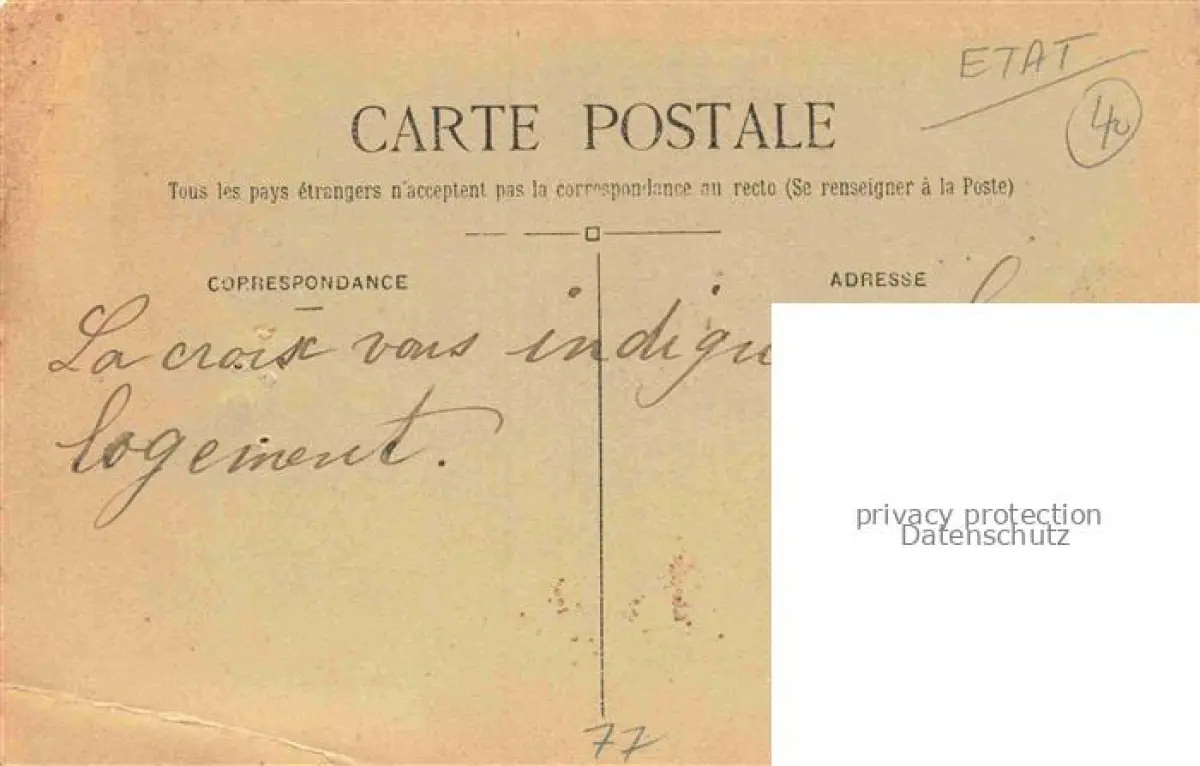 ETAT
40
CARTE POSTALE
Tous les pays étrangers n'acceptent pas la correspondance au recto (Se renseigner à la Poste)
CORRESPONDANCE
ADRESSE
La croix vous indiqu
logement.
privacy protection
Datenschutz
77